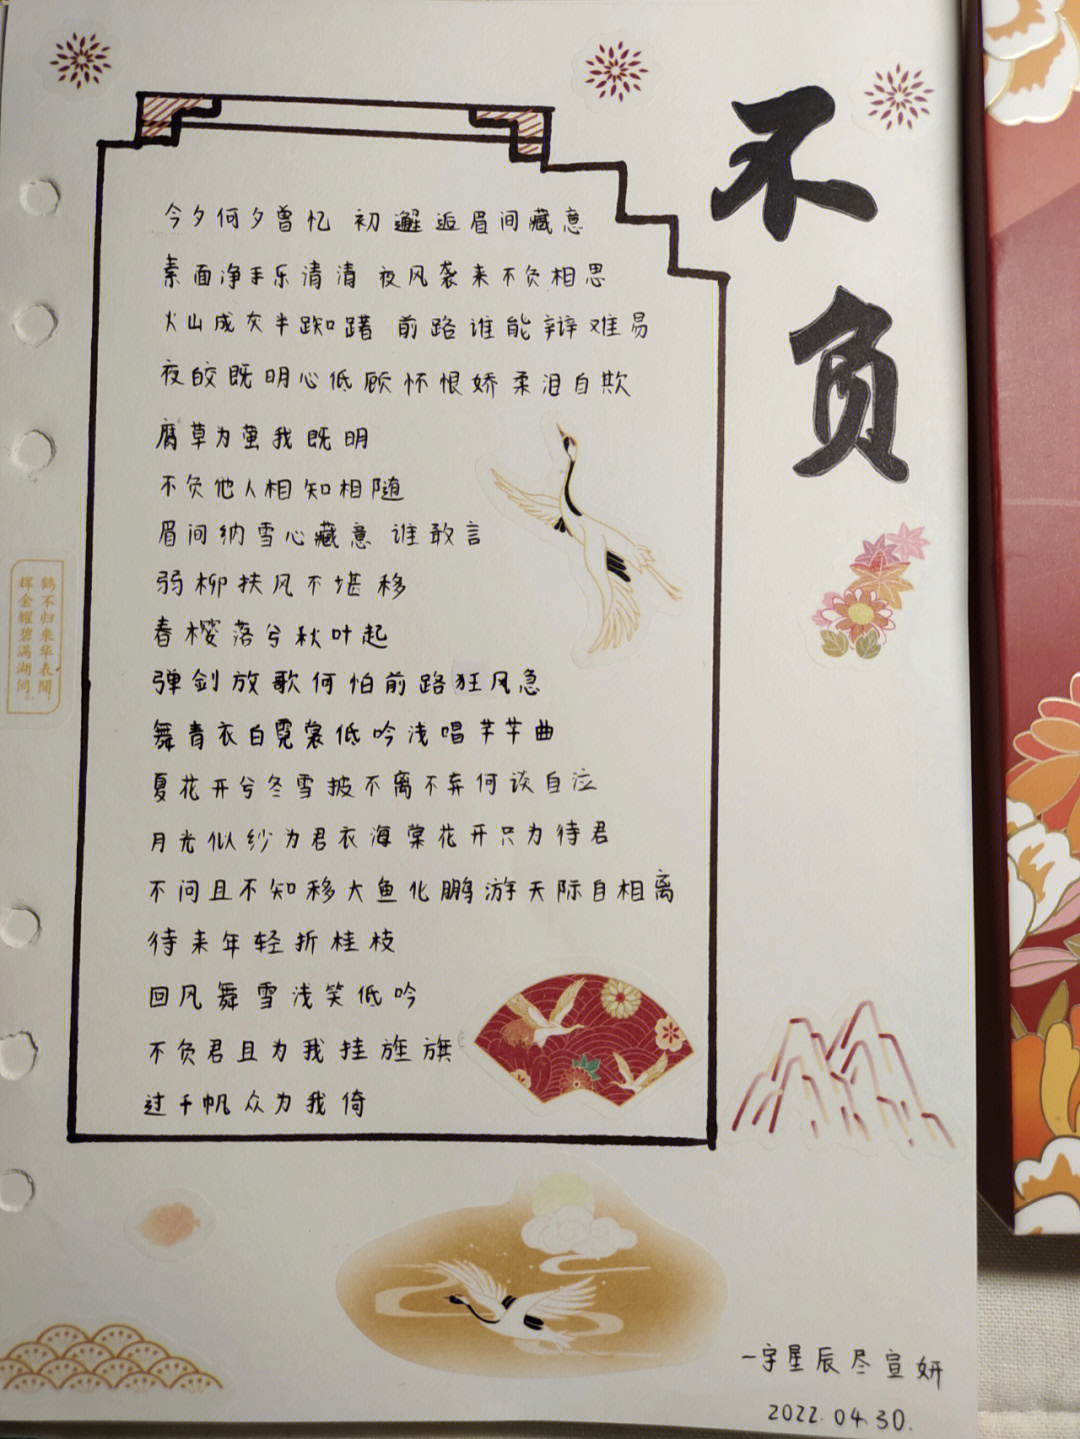 不负
今夕何夕曾忆 初邂逅眉间藏意
素面净手乐清清 夜风袭来不负相思
火山成灰半踟躇 前路谁能辩难易
夜皎既明心低顾怀恨娇柔泪自欺
腐草为萤我既明
不负他人相知相随
眉间纳雪心藏意 谁敢言
弱柳扶风不堪移
春樱落兮秋叶起
弹剑放歌何怕前路狂风急
舞青衣白霓裳低吟浅唱芊芊曲
夏花开兮冬雪披不离不弃何谈自泣
月光似纱为君衣海棠花开只为待君
不问且不知移大鱼化鹏游天际自相离
待来年轻折桂枝
回风舞雪浅笑低吟
不负君且为我挂旌旗
过千帆众为我倚
鹤不归来华表閒，
辉金耀碧满湖间。
一宇星辰尽宣妍
2022.04.30.